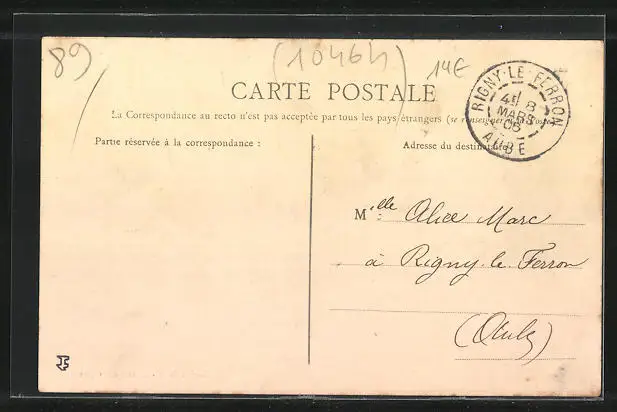 89
(10464)
14E
CARTE POSTALE
La Correspondance au recto n'est pas acceptée par tous les pays étrangers (se renseigner à la Poste)
Partie réservée à la correspondance :
Adresse du destinataire
RIGNY-LE-FERRON
8
MARS
08
AUBE
Mlle Alice Marc
à Rigny-le-Ferron
(Aube)